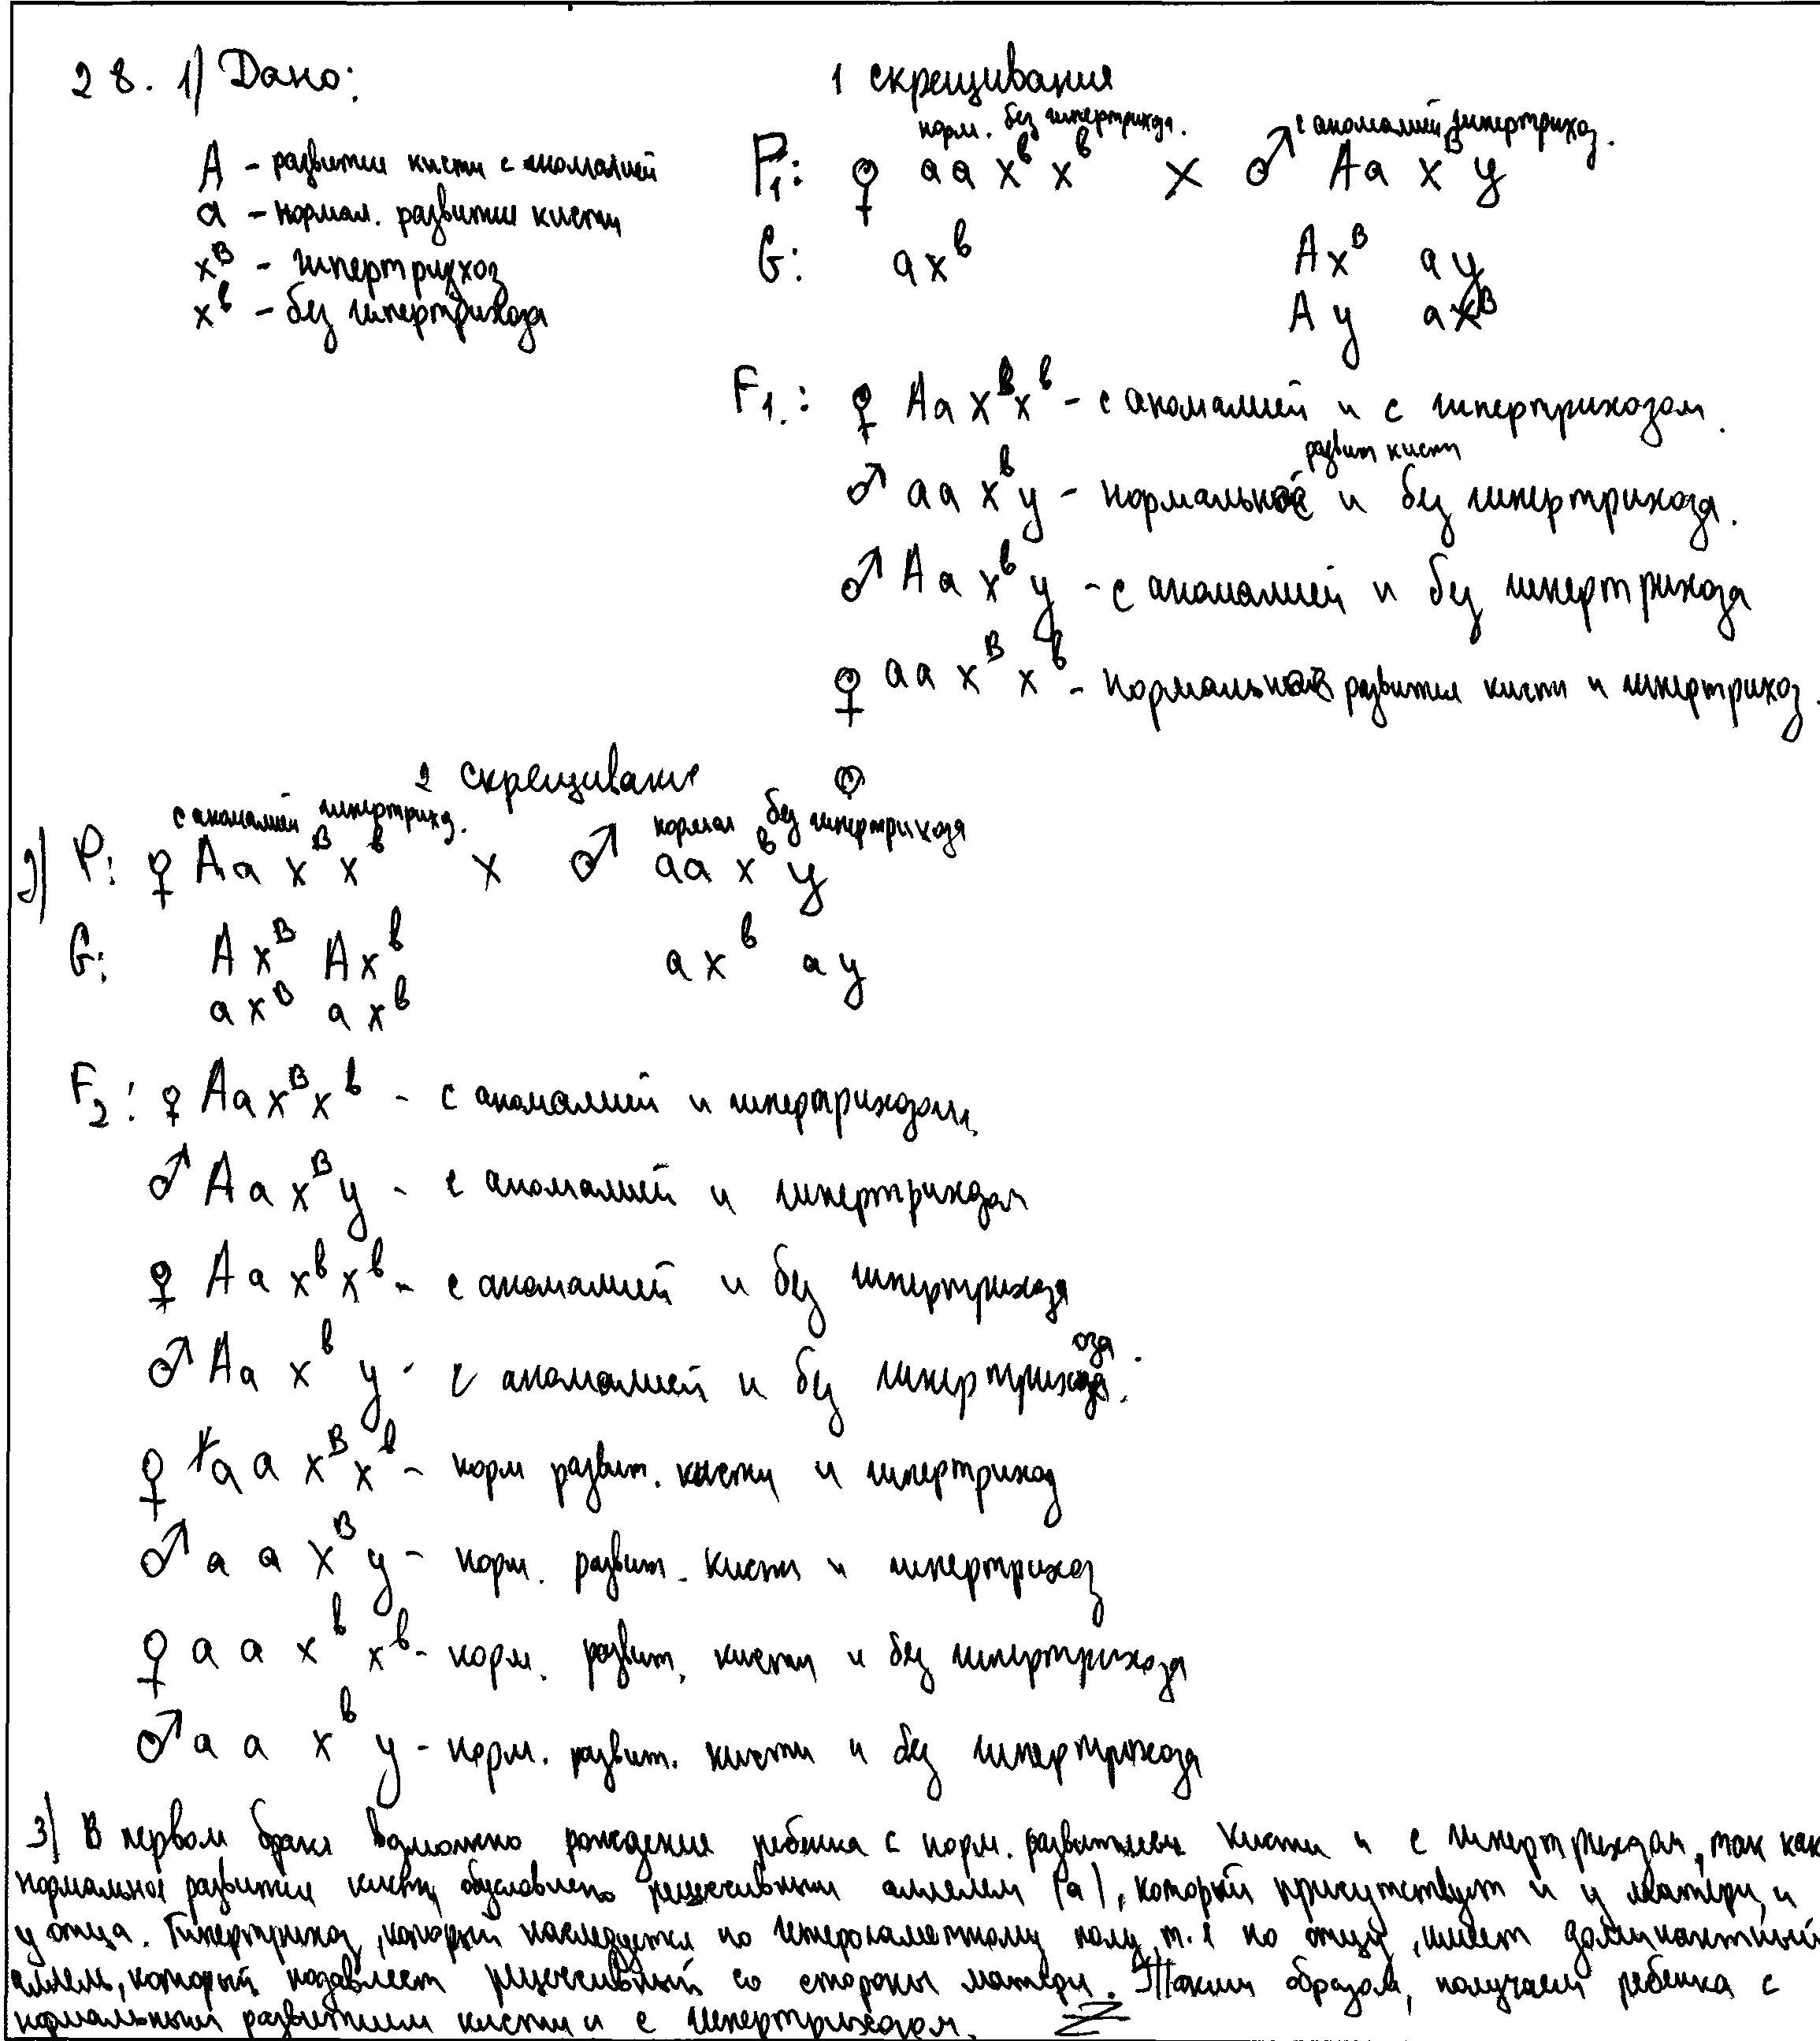 28. 1) Дано:
A - развитие кисти с аномалией
a - нормал. развитие кисти
x^B - гипертрихоз
x^b - без гипертрихоза
1 скрещивание
норм. без гипертрихоза. с аномалией, гипертрихоз.
P1: ♀ aa x^b x^b × ♂ Aa x^B y
G: ax^b Ax^B ay
Ay ax^B
F1.: ♀ Aa x^B x^b - с аномалией и с гипертрихозом.
развит кисти
♂ aa x^b y - нормальное и без гипертрихоза.
♂ Aa x^b y - с аномалией и без гипертрихоза
♀ aa x^B x^b - нормальное развитие кисти и гипертрихоз.
2 скрещивание
с аномалией гипертрихоз. нормал без гипертрихоза
2) P: ♀ Aa x^B x^b × ♂ aa x^b y
G: Ax^B Ax^b ax^b ay
ax^B ax^b
F2: ♀ Aa x^B x^b - с аномалией и гипертрихозом.
♂ Aa x^B y - с аномалией и гипертрихозом
♀ Aa x^b x^b - с аномалией и без гипертрихоза
♂ Aa x^b y - с аномалией и без гипертрихоза.
♀ aa x^B x^b - норм развит. кисти и гипертрихоз
♂ aa x^B y - норм. развит. кисти и гипертрихоз
♀ aa x^b x^b - норм. развит. кисти и без гипертрихоза
♂ aa x^b y - норм. развит. кисти и без гипертрихоза
3) В первом браке возможно рождение ребенка с норм. развитием кисти и с гипертрихозом, так как
нормальное развитие кисти обусловлено рецессивным аллелем (a), который присутствует и у матери, и
у отца. Гипертрихоз, который наследуется по гетерогаметному полу, т.е по отцу, имеет доминантный
аллель, который подавляет рецессивный со стороны матери. Таким образом, получаем ребенка с
нормальным развитием кисти и с гипертрихозом.